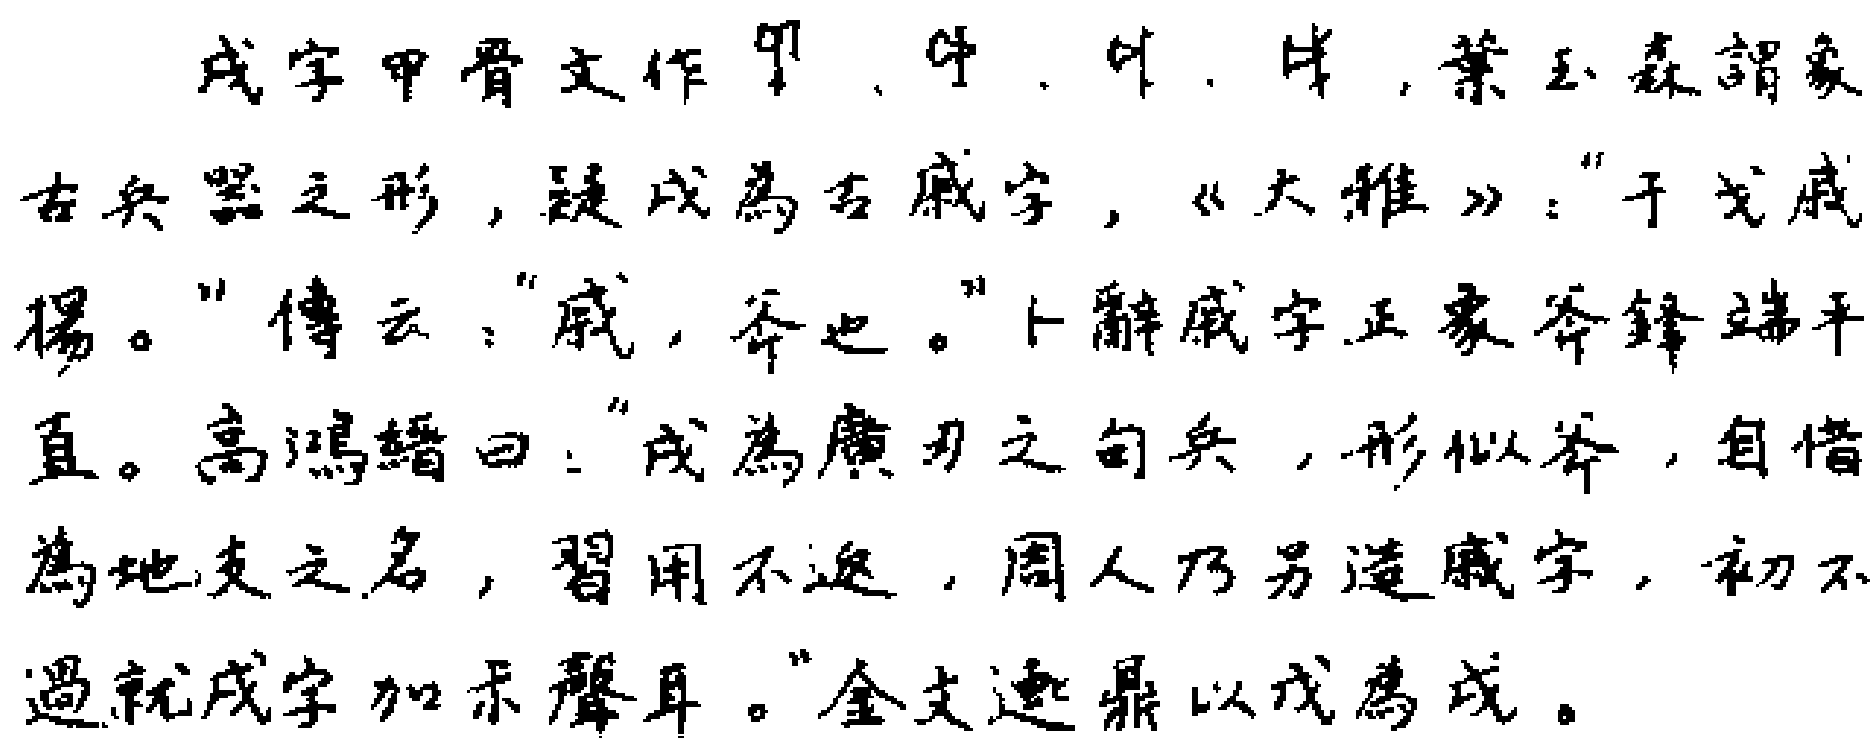 戌字甲骨文作、、、,葉玉森謂象
古兵器之形,疑戌為古戚字,《大雅》:“干戈戚
揚。”傳云:“戚,斧也。”卜辭戚字正象斧鋒端平
直。高鴻縉曰:“戌為廣刃之句兵,形似斧,自借
為地支之名,習用不返,周人乃另造戚字,初不
過就戌字加尗聲耳。”金文鼎以戊為戌。